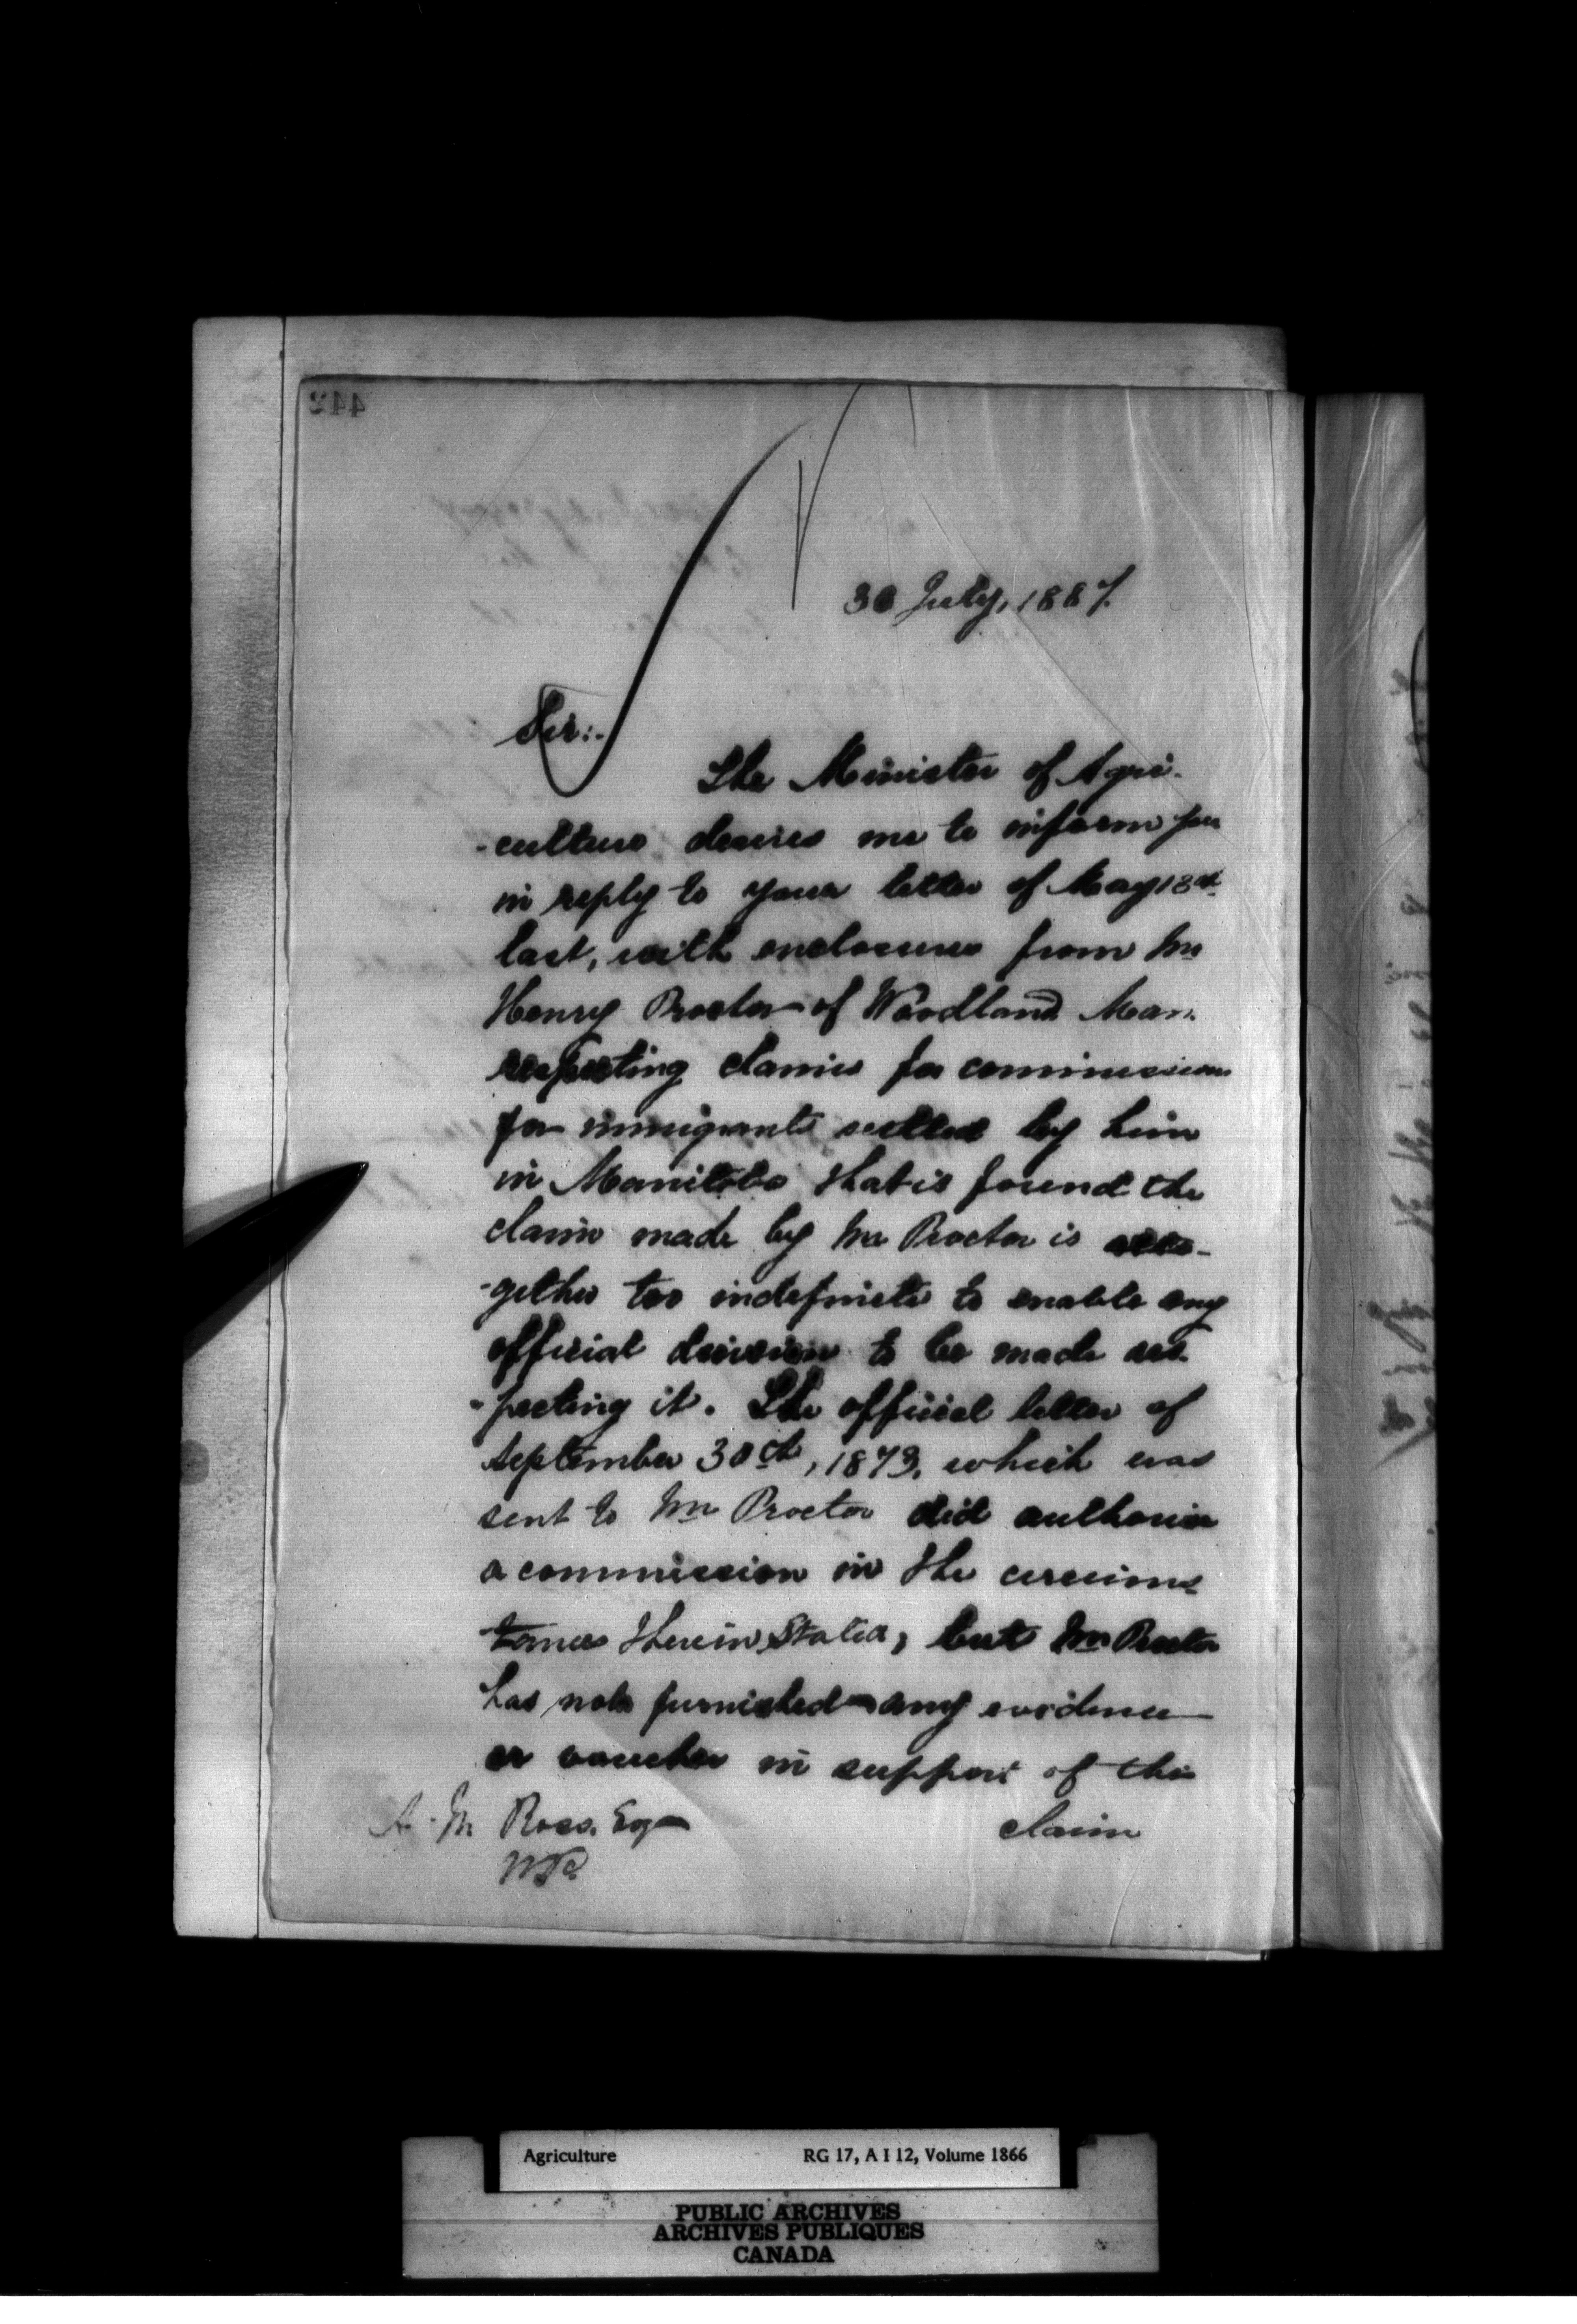 442
30 July, 1887.
Sir:.
The Minister of Agri-
-culture desires me to inform you
in reply to your letter of May 18th
last, with enclosures from Mr
Henry Proctor of Woodland Man.
respecting claims for commission
for immigrants settled by him
in Manitoba that is found the
claim made by Mr Proctor is alto-
-gether too indefinite to enable any
official decision to be made res-
-pecting it. The official letter of
September 30th, 1873, which was
sent to Mr Proctor did authorize
a commission in the circums-
tances therein stated, but Mr Proctor
has not furnished any evidence
or voucher in support of this
claim
A. M Ross. Esq
Agriculture RG 17, A I 12, Volume 1866
PUBLIC ARCHIVES
ARCHIVES PUBLIQUES
CANADA